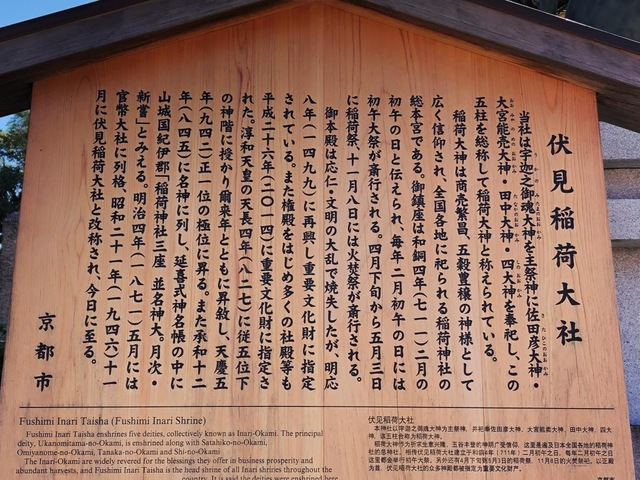 伏見稲荷大社
当社は宇迦之御魂大神を主祭神に佐田彦大神・
大宮能売大神・田中大神・四大神を奉祀し、この
五柱を総称して稲荷大神と称えられている。
稲荷大神は商売繁昌、五穀豊穣の神様として
広く信仰され、全国各地に祀られる稲荷神社の
総本宮である。御鎮座は和銅四年(七一一)二月の
初午の日と伝えられ、毎年二月初午の日には
初午大祭が斎行される。四月下旬から五月三日
に稲荷祭、十一月八日には火焚祭が斎行される。
御本殿は応仁・文明の大乱で焼失したが、明応
八年(一四九九)に再興し重要文化財に指定
されている。また権殿をはじめ多くの社殿等も
平成二十六年(二〇一四)に重要文化財に指定さ
れた。淳和天皇の天長四年(八二七)に従五位下
の神階に授かり爾来年とともに昇敍し、天慶五
年(九四二)正一位の極位に昇る。また承和十二
年(八四五)に名神に列し、延喜式神名帳の中に
山城国紀伊郡「稲荷神社三座 並名神大。月次・
新嘗」とみえる。明治四年(一八七一)五月には
官幣大社に列格、昭和二十一年(一九四六)十一
月に伏見稲荷大社と改称され、今日に至る。
京都市
Fushimi Inari Taisha (Fushimi Inari Shrine)
Fushimi Inari Taisha enshrines five deities, collectively known as Inari-Okami. The principal
deity, Ukanomitama-no-Okami, is enshrined along with Satahiko-no-Okami,
Omiyanome-no-Okami, Tanaka-no-Okami and Shi-no-Okami
The Inari-Okami are widely revered for the blessings they offer in business prosperity and
abundant harvests, and Fushimi Inari Taisha is the head shrine of all Inari shrines throughout the
country. It is said the deities were enshrined here
伏见稻荷大社